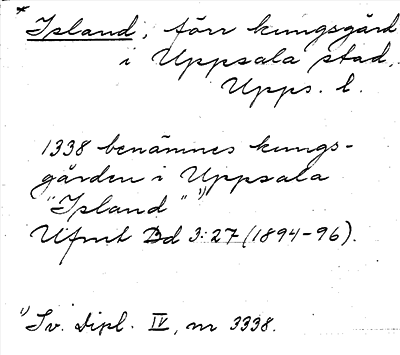 * Island, förr kungsgård
i Uppsala stad,
Upps. l.
1338 benämnes kungs-
gården i Uppsala
"Island" ¹⁾
Ufmt Bd 3:27 (1894-96).
¹⁾ Sv. Dipl. IV, nr 3338.